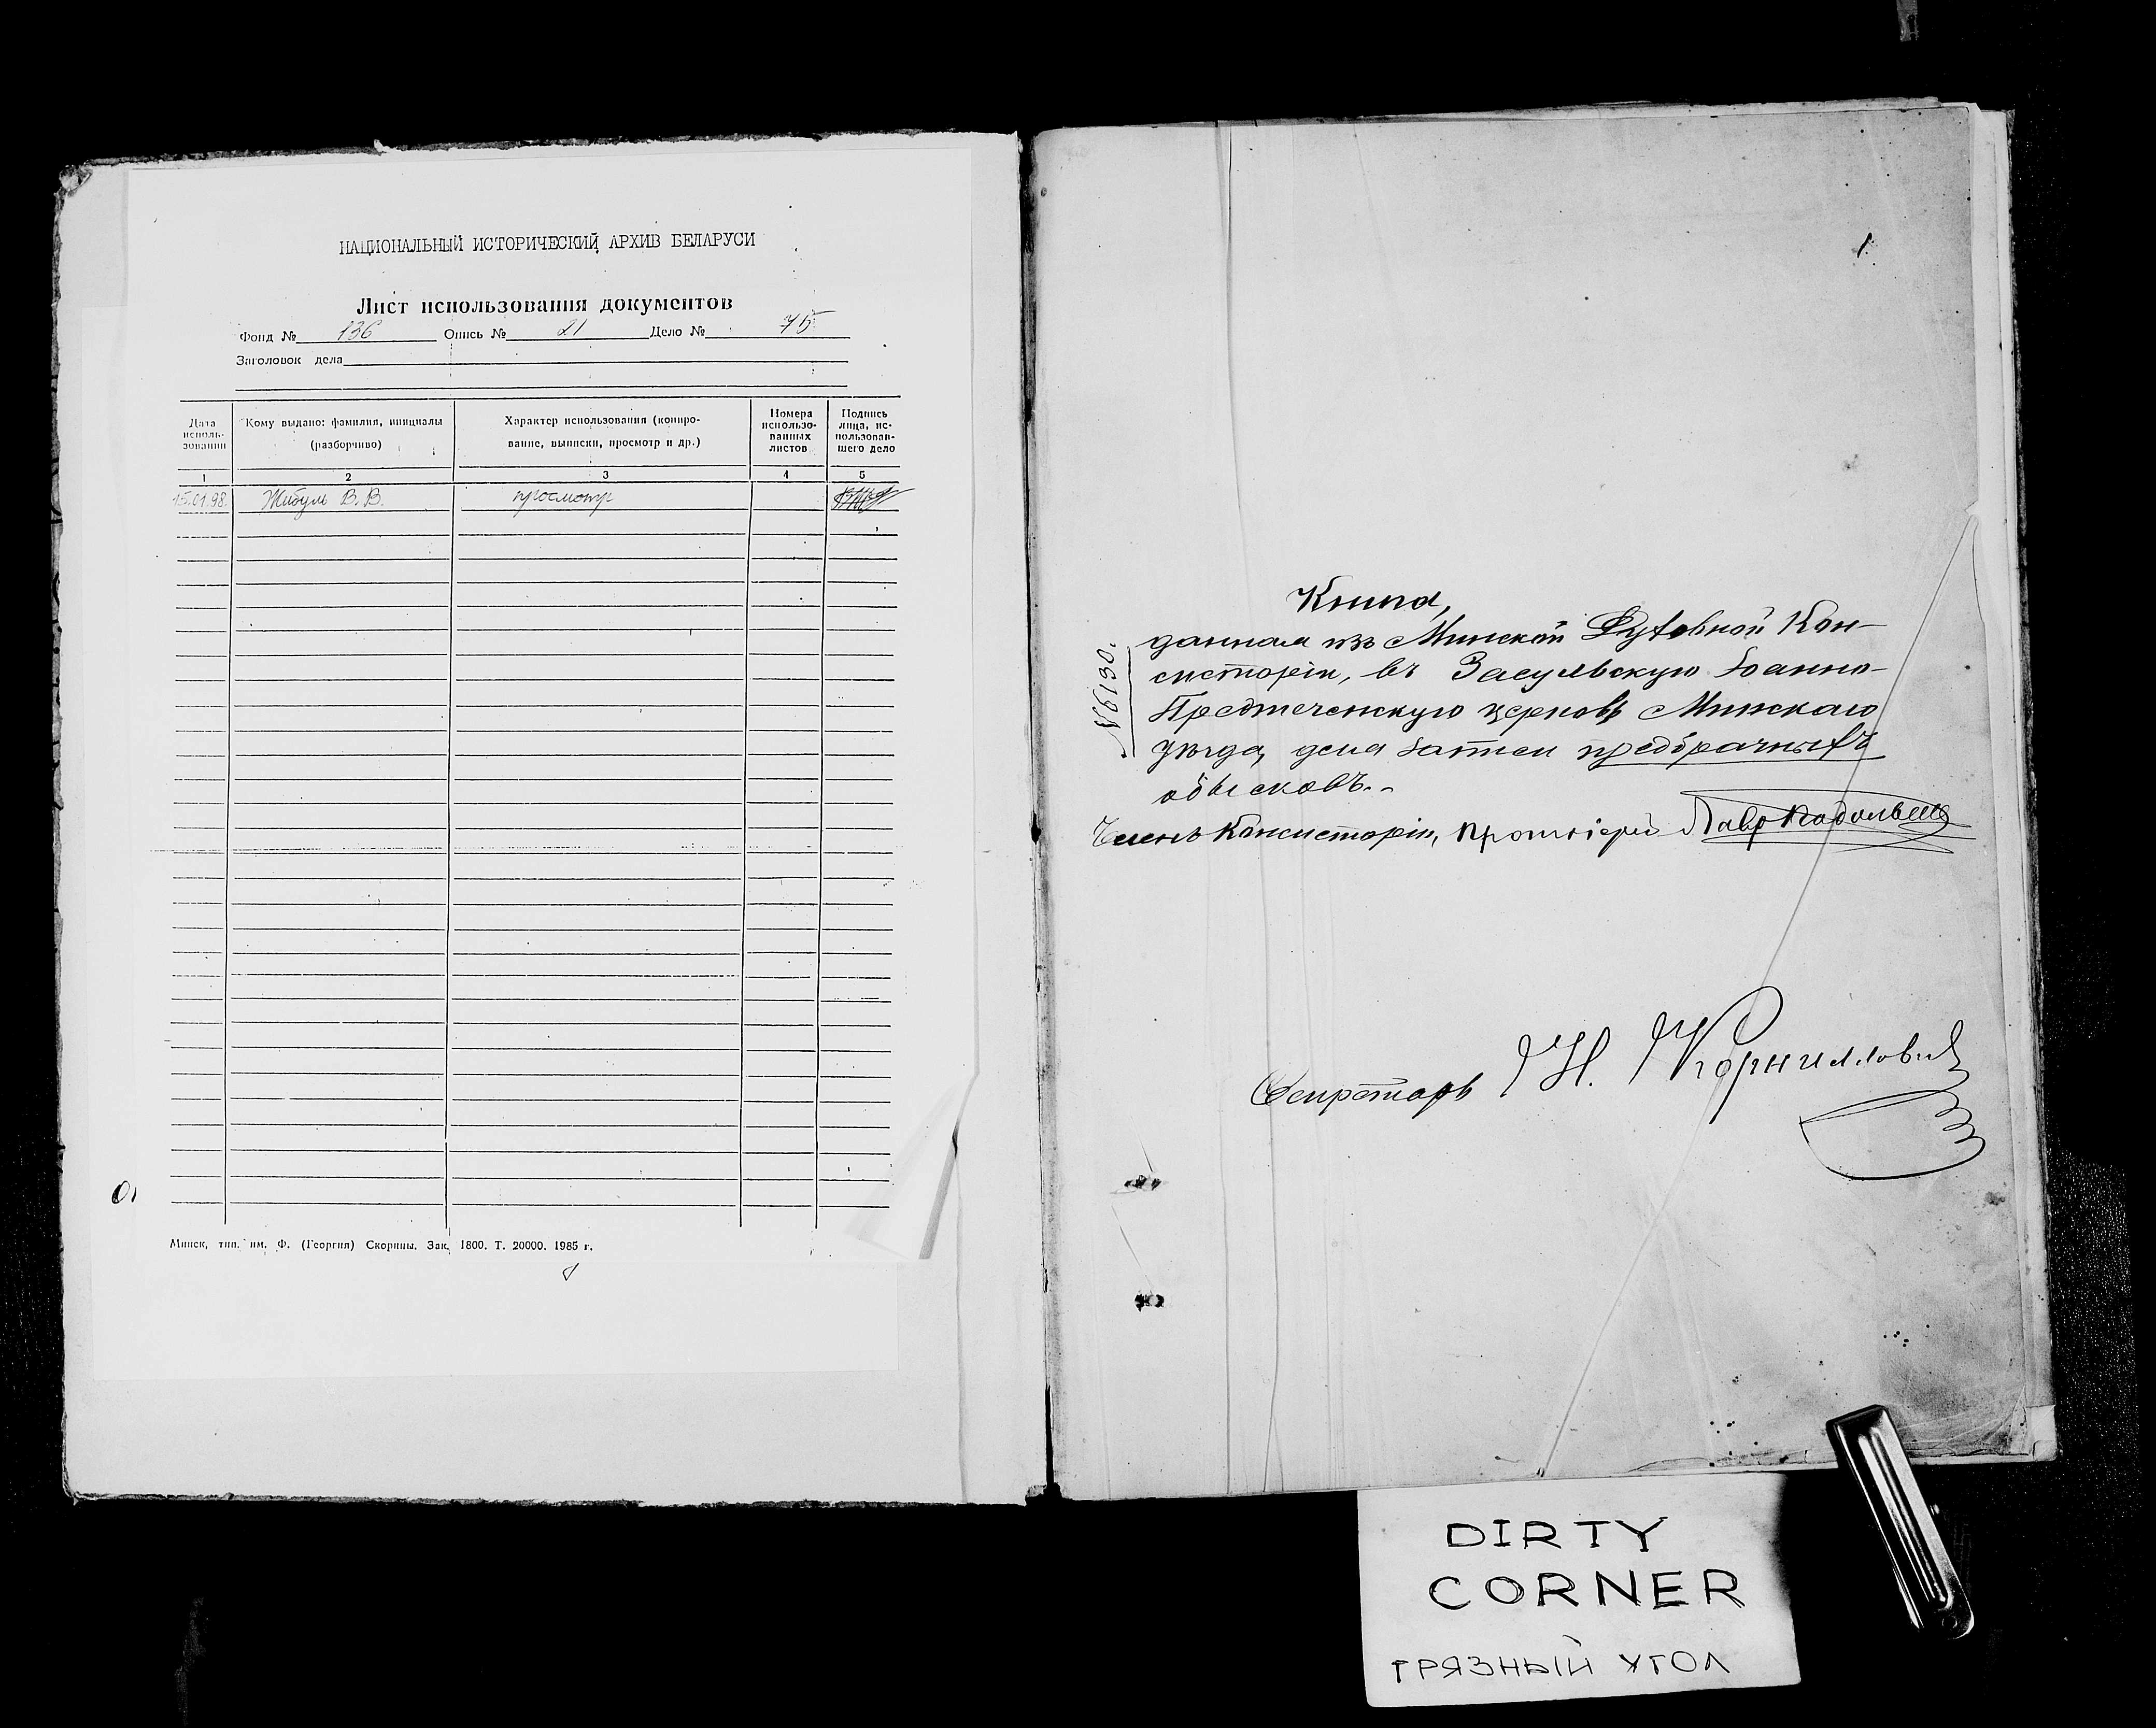 НАЦИОНАЛЬНЫЙ ИСТОРИЧЕСКИЙ АРХИВ БЕЛАРУСИ
Лист использования документов
Фонд № 136 Опись № 21 Дело № 75
Заголовок дела
Дата исполь-зования
Кому выдано: фамилия, инициалы (разборчиво)
Характер использования (копиро-вание, выписки, просмотр и др.)
Номера использо-ванных листов
Подпись лица, ис-пользовав-шего дело
1 2 3 4 5
15.01.98. Жибуль В. В. просмотр
Минск, тип. им. Ф. (Георгия) Скорины. Зак. 1800. Т. 20000. 1985 г.
1.
№6130.
Книга,
данная изъ Минской Духовной Кон-
систоріи, въ Засульскую Іоанно-
Предтеченскую церковь Минскаго
уѣзда, для записи предбрачныхъ
обысковъ.-
Членъ Консисторіи, Протоіерей Лавр
Секретарь Н. Корнилловичъ
DIRTY
CORNER
ГРЯЗНЫЙ УГОЛ